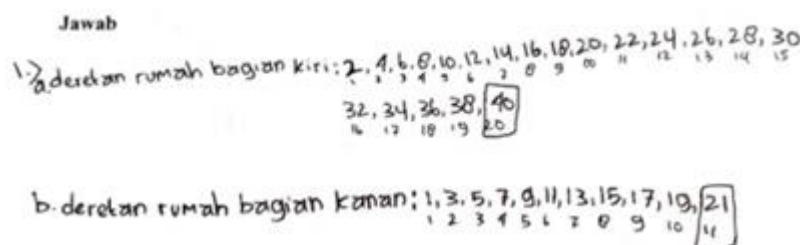 Jawab
1.) a. deretan rumah bagian kiri: 2, 4, 6, 8, 10, 12, 14, 16, 18, 20, 22, 24, 26, 28, 30
1 2 3 4 5 6 7 8 9 10 11 12 13 14 15
32, 34, 36, 38, 40
16 17 18 19 20
b. deretan rumah bagian kanan: 1, 3, 5, 7, 9, 11, 13, 15, 17, 19, 21
1 2 3 4 5 6 7 8 9 10 11